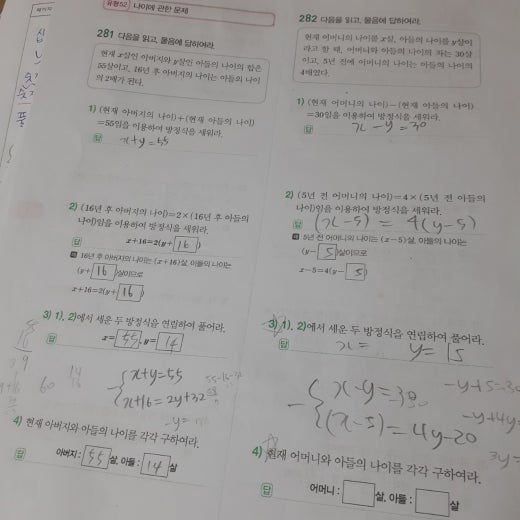 유형52 나이에 관한 문제
281 다음을 읽고, 물음에 답하여라.
현재 x살인 아버지와 y살인 아들의 나이의 합은
55살이고, 16년 후 아버지의 나이는 아들의 나이
의 2배가 된다.
1) (현재 아버지의 나이)+(현재 아들의 나이)
=55임을 이용하여 방정식을 세워라.
답 x+y=55
2) (16년 후 아버지의 나이)=2×(16년 후 아들의
나이)임을 이용하여 방정식을 세워라.
답 x+16=2(y+16)
16년 후 아버지의 나이는 (x+16)살, 아들의 나이는
(y+16)살이므로
x+16=2(y+16)
3) 1), 2)에서 세운 두 방정식을 연립하여 풀어라.
답 x=55, y=14
x+y=55
x+16=2y+32
60
14
16
4) 현재 아버지와 아들의 나이를 각각 구하여라.
답 아버지: 55살, 아들: 14살
282 다음을 읽고, 물음에 답하여라.
현재 어머니의 나이를 x살, 아들의 나이를 y살이
라고 할 때, 어머니와 아들의 나이의 차는 30살
이고, 5년 전에 어머니의 나이는 아들의 나이의
4배였다.
1) (현재 어머니의 나이)-(현재 아들의 나이)
=30임을 이용하여 방정식을 세워라.
답 x-y=30
2) (5년 전 어머니의 나이)=4×(5년 전 아들의
나이)임을 이용하여 방정식을 세워라.
답 (x-5)=4(y-5)
5년 전 어머니의 나이는 (x-5)살, 아들의 나이는
(y-5)살이므로
x-5=4(y-5)
3) 1), 2)에서 세운 두 방정식을 연립하여 풀어라.
답 x= y=15
x-y=30
(x-5)=4y-20
-y+5=30
-y+4y=
3y=
4) 현재 어머니와 아들의 나이를 각각 구하여라.
답 어머니: 살, 아들: 살